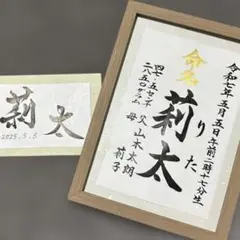 令和七年五月五日午前二時十七分生
命名
莉太
りた
四七・五センチ
二八五〇グラム
父 山木太朗
母 莉子
莉太
2025.5.5